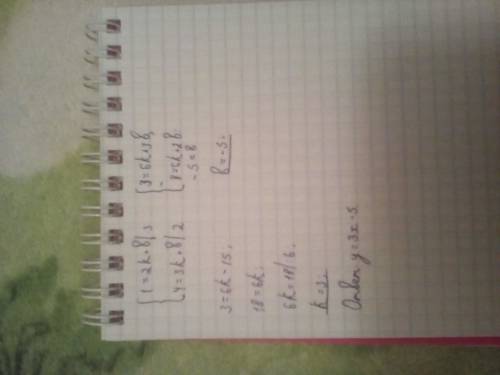 { 1 = 2k + b | 3
{ 4 = 3k + b | 2
{ 3 = 6k + 3b,
{ 8 = 6k + 2b.
- 5 = b
b = - 5.
3 = 6k - 15.
18 = 6k.
6k = 18 | 6.
k = 3.
Ответ y = 3x - 5